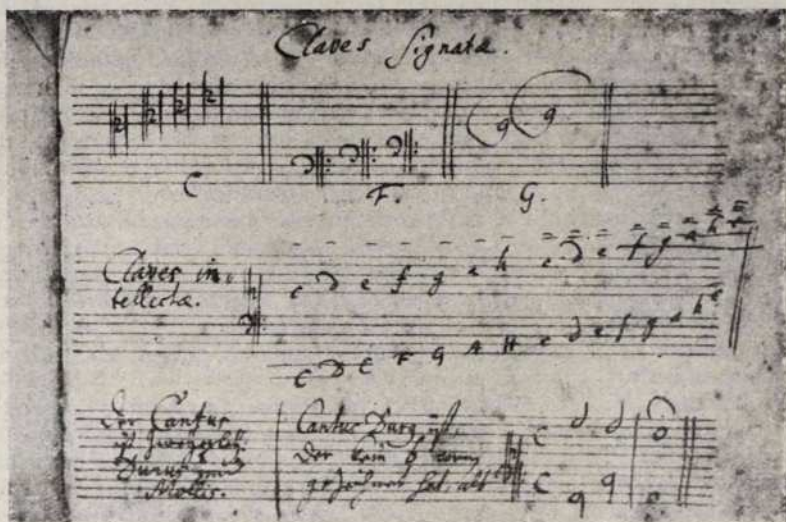 Claves Signatæ.
C F. G.
Claves in-
tellectæ.
c d e f g a h c d e f g a h c
C D E F G A H c d e f g a h c
Der Cantus
ist zweyerley
Durus und
Mollis.
Cantus Durus ist,
der kein b
gezeichnet hat, als